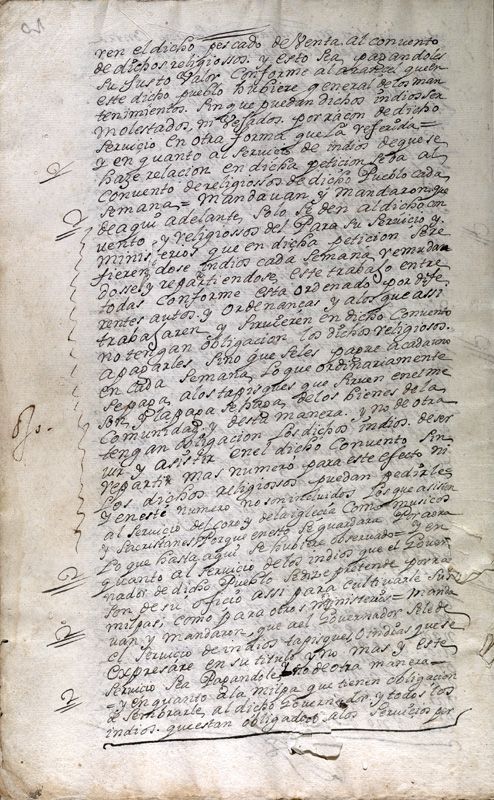 ren el dicho pescado de Venta. al convento
de dichos religiossos. y esto sea pagandoles
su Justo Valor Conforme al aranzel que en
este dicho pueblo hubiere general de los man
tenimientos. sin que puedan dichos indios sea
molestados, ni Vejados. por raçon de dicho
servicio En otra forma que la referida =
y en quanto al Servicio de indios de que se
haze relacion en dicha peticion se da al
Convento de religiossos de dicho Pueblo cada
semana = Mandavan, y mandaron que
de aqui adelante, Solo se den al dicho con
vento, y religiossos del Para su servicio y
ministerios que en dicha peticion se re
fieren, dose indios cada semana, remudan
dosse, y repartiendose, este trabajo entre
todas Conforme esta ordenado por dife
rentes autos. y Ordenanças y a los que assi
trabajaren y Sirvieren en dicho Convento
no tengan obligacion los dichos religiosos.
a pagarles Sino que se les pague a cada uno
en cada Semana, lo que ordinariamente
se paga, a los tapisques que sirven en esme
son y la paga se haga, de los bienes de la
Comunidad y desta manera. y no de otra
tengan obligacion los dichos indios. de ser
uir y asistir en el dicho Convento sin
repartir mas numero para este efecto ni
los dichos religiossos puedan pedirle
y en este numero no son incluidos los que assisten
al servicio del Coro y de la iglecia Como musicos
y sacristanes Porque en esto se guardara Por aora
lo que hasta aqui se hubiere observado = y en
quanto al servicio de los indios que el Gover
nador de dicho Pueblo pretende por ra
son de su oficio assi para cultivarle sus
milpas, como para otros ministerios = manda
van y mandaron que a el Governador se le de
el servicio de indios tapisques o indias que se
expresare en su titulo y no mas y este
servicio sea Pagandole y no de otra manera =
= y en quanto a la milpa que tienen obligacion
a sembrarle, al dicho Governador y todos los
indios. que estan obligados a los Servicios por